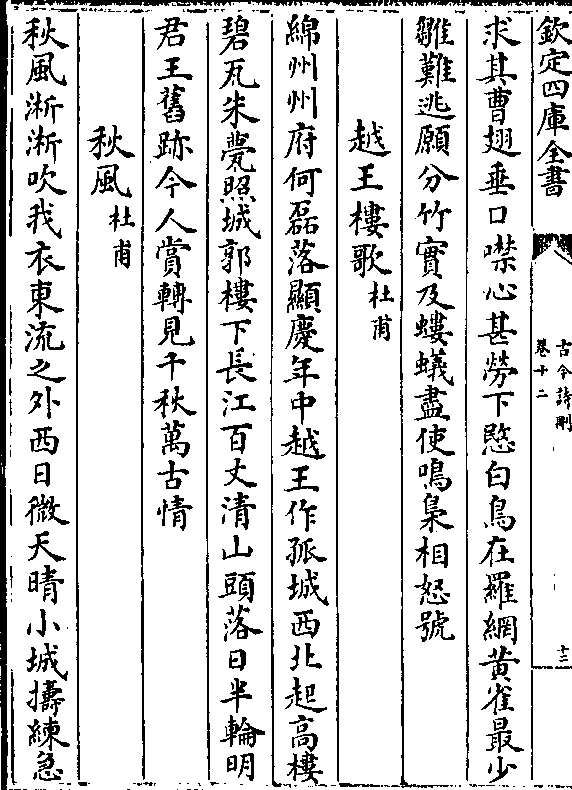 欽定四庫全書
古今詩刪
卷十二
十三
求其曹翅垂口噤心甚勞下愍白鳥在羅網黄雀最少
雛難逃願分竹實及螻蟻盡使鳴梟相怒號
越王樓歌杜甫
綿州州府何磊落顯慶年中越王作孤城西北起高樓
碧瓦朱甍照城郭樓下長江百丈清山頭落日半輪明
君王舊跡今人賞轉見千秋萬古情
秋風杜甫
秋風淅淅吹我衣東流之外西日微天晴小城擣練急